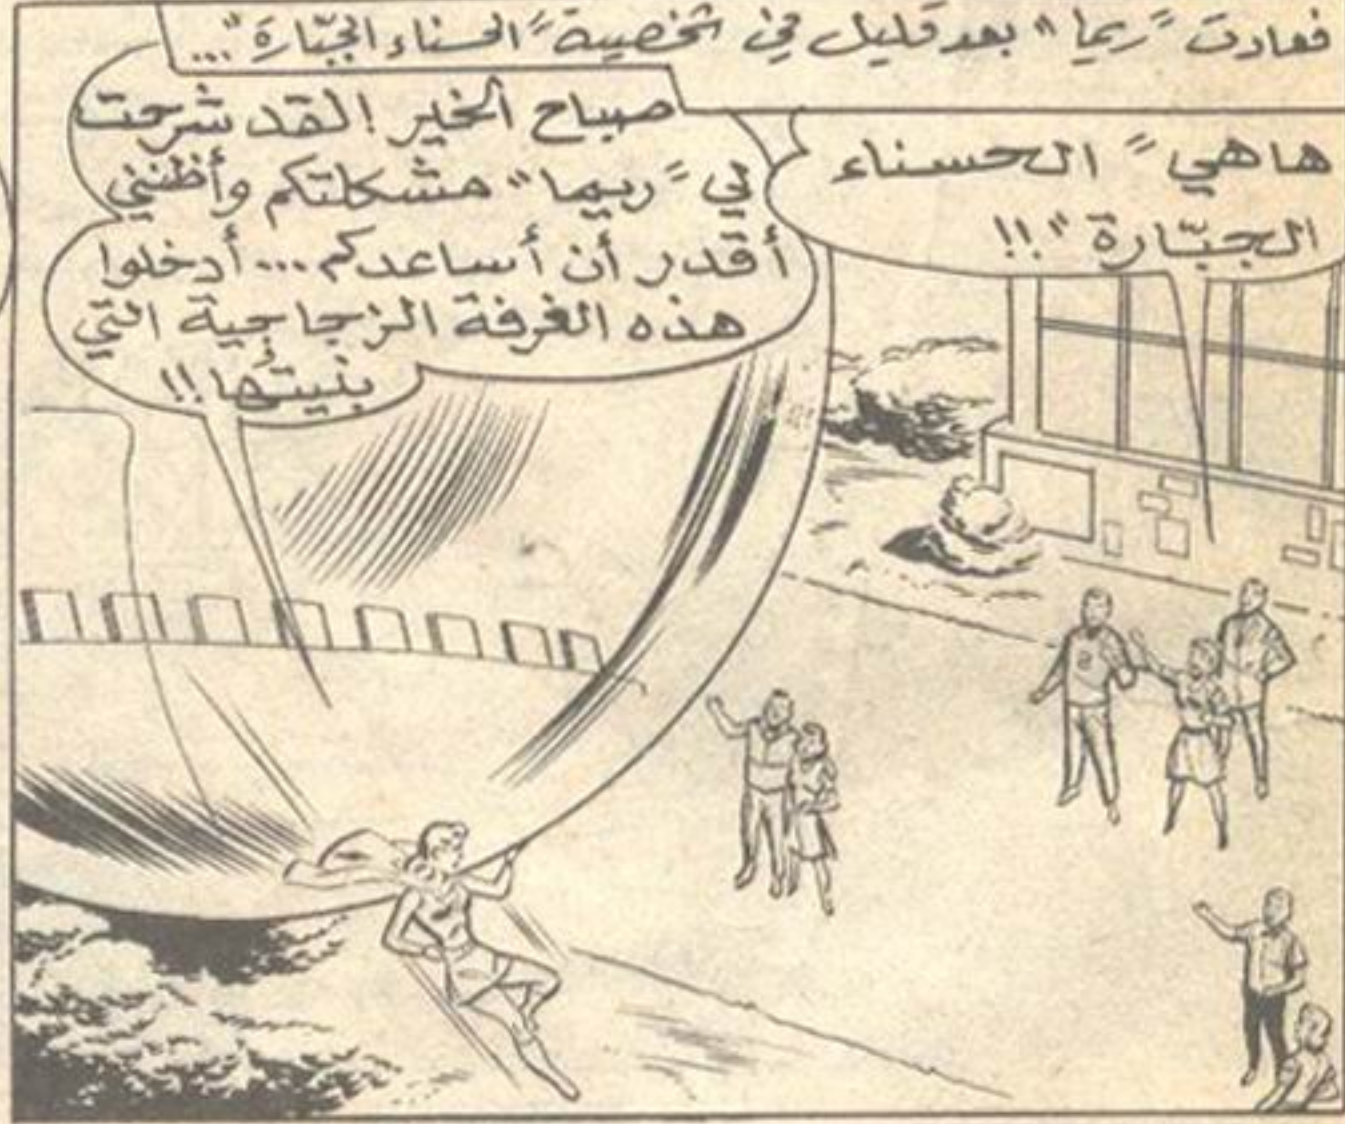 فعادت "ريما" بعد قليل في شخصية "الحسناء الجبّارة"...
ها هي "الحسناء
الجبّارة"!!
صباح الخير! لقد شرحت
لي "ريما" مشكلتكم وأظنني
أقدر أن أساعدكم... أدخلوا
هذه الغرفة الزجاجية التي
بنيتُها!!
2